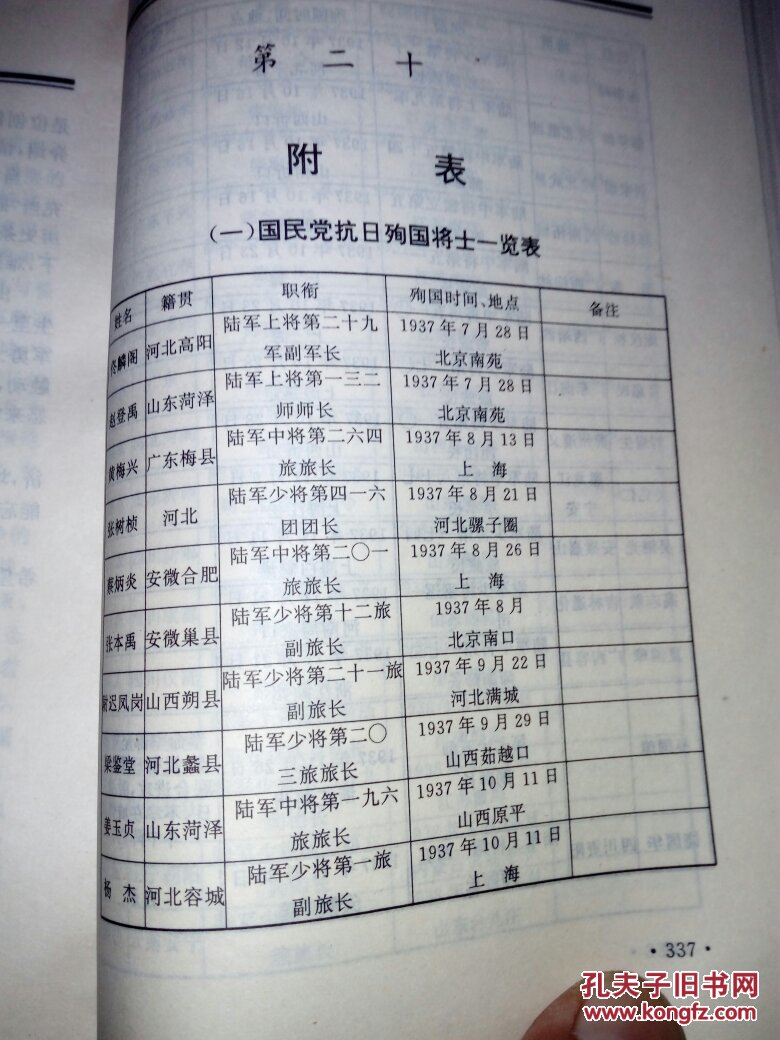 第二十
附表
(一)国民党抗日殉国将士一览表
姓名 籍贯 职衔 殉国时间、地点 备注
佟麟阁 河北高阳 陆军上将第二十九军副军长 1937年7月28日 北京南苑
赵登禹 山东菏泽 陆军上将第一三二师师长 1937年7月28日 北京南苑
黄梅兴 广东梅县 陆军中将第二六四旅旅长 1937年8月13日 上海
张树桢 河北 陆军少将第四一六团团长 1937年8月21日 河北骡子圈
蔡炳炎 安微合肥 陆军中将第二〇一旅旅长 1937年8月26日 上海
张本禹 安微巢县 陆军少将第十二旅副旅长 1937年8月 北京南口
尉迟凤岗 山西朔县 陆军少将第二十一旅副旅长 1937年9月22日 河北满城
梁鉴堂 河北蠡县 陆军少将第二〇三旅旅长 1937年9月29日 山西茹越口
姜玉贞 山东菏泽 陆军中将第一九六旅旅长 1937年10月11日 山西原平
杨杰 河北容城 陆军少将第一旅副旅长 1937年10月11日 上海
·337·
孔夫子旧书网
www.kongfz.com